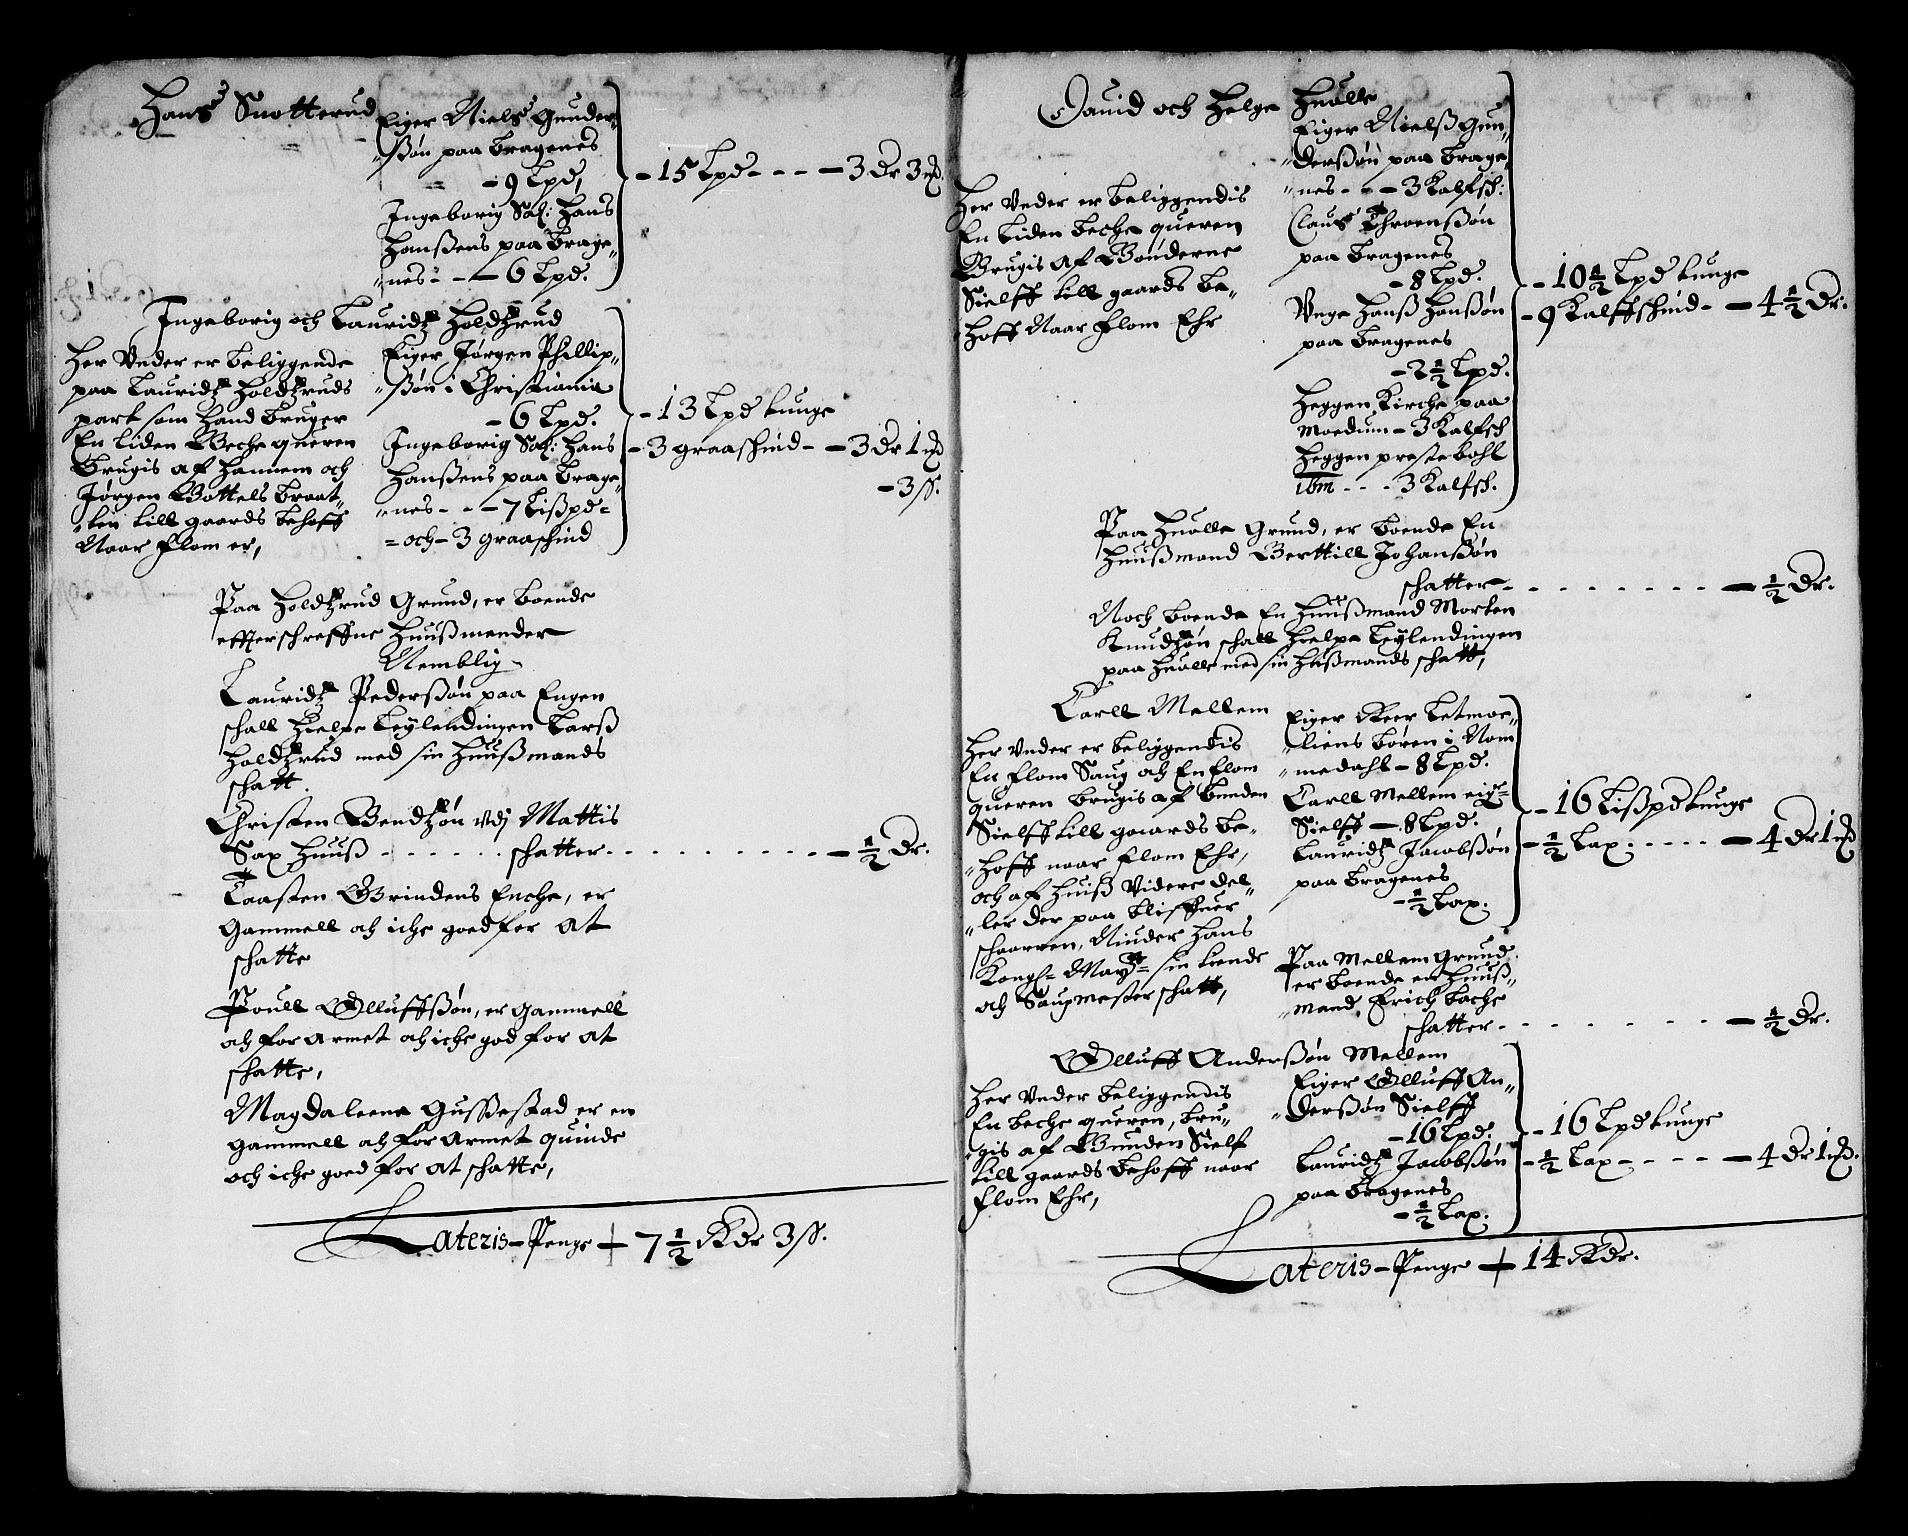 Hans Snotterud
Eiger Niels Gunder-
"ßøn paa Bragenes
- 9 Lpd,
Ingeborig Sal: Hans
Hanßens paa Brage-
"nes - - 6 Lpd.
- 15 Lpd - - - - 3 Dr 3
Ingeborig och Lauridtz Holdtzrud
Her Vnder er beliggende
paa Lauridtz Holdtzruds
part som Hand bruger
En liden Beche queren
brugis af Hannem och
Jørgen Bottels braat-
"ten till gaards behoff
Naar flom er,
Eiger Jørgen Phillip"
"ßøn i Christiania
- 6 Lpd.
Ingeborig Sal: Hans
Hanßens paa Brage"
"nes - - 7 Lißpd =
= och - 3 graaschind
- 13 Lpd tunge
- 3 graaschind - - 3 Dr 1
- 3 ß.
Paa Holdtzrud Grund, er boende
effterschreffne Huußmender
Nemblig
Lauridtz Pederßøn paa Engen
schall Hielpe Leylendingen Larß
Holdtzrud med sin Huußmands
schatt.
Christen Bendtzøn vdj Mattis
Sax Huuß - - - - - - schatter - - - - - - - - - - ½ Dr.
Taasten Grindens Enche, er
Gammell och iche goed for At
schatte
Poull Olluffßøn, er gammell
och forarmet och iche god for at
schatte,
Magdaleena Gußestad er en
gammell och forarmet quinde
och iche goed for At schatte,
Lateris - Penge + 7½ Rdr 3 ß.
Dauid och Helge Huolle
Her Vnder er beliggendis
En liden beche queren
Brugis Af Bønderne
Sielff till gaards be-
hoff Naar flom Ehr
Eiger Nielß Gun"
"derßøn paa brage"
"nes - - - 3 Kalfsch:
Claus Throenßøn
paa bragenes
- 8 Lpd.
Vnge Hanß Hanßøn
paa bragenes
- 2½ Lpd.
Heggen Kirche paa
Moedum - 3 Kalfsch
Heggen prestebohl
ibm - - - 3 Kalfsch.
- 10½ Lpd tunge
- 9 Kalffschind - - 4½ Dr.
Paa Huolle Grund, er boende En
Huußmand Berttill Johanßøn
schatter - - - - - - - - - ½ Dr.
Noch boende En Huußmand Morten
Knudtzøn schall Hielpe Leylendingen
paa Huolle med sin Hußmands schatt,
Carll Mellem
Her vnder er beliggendis
En flom Saug och En flom
queren brugis af bunden
Sielff till gaards be-
"hoff naar flom Ehr,
och af Huiß Videre del"
"ler der paa bliffuer
schaarren, Niuder Hans
Kongl= Maytt= sin tiende
och Saugmester schatt,
Eiger Peer
"liens børen i Nom
"medahl - 8 Lpd.
Carll Mellem eig=
Sielff - 8 Lpd.
Lauridtz Jacobßøn
paa bragenes
- ½ Lax.
- 16 Lißpd tunge
- ½ Lax. - - - - - 4 Dr 1
Paa Mellem Grund
er boende en Huuß"
"mand, Erich bache
schatter - - - - - - - - ½ Dr.
Olluff Anderßøn Mellem
Her Vnder beliggendis
En beche queren, bru"
"gis af Bunden Sielf
till gaards behoff naar
flom Ehr,
Eiger Olluff An"
"derßøn Sielff
- 16 Lpd.
Lauridtz Jacobßøn
paa bragenes
- ½ Lax.
- 16 Lpd tunge
- ½ Lax - - - - - 4 Dr 1
Lateris - Penge + 14 Rdr.